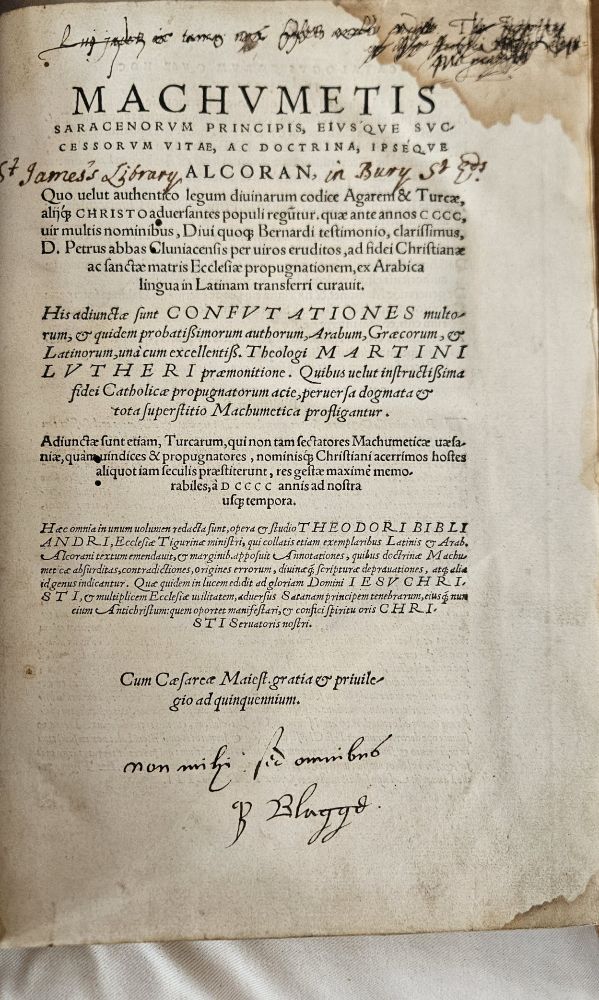 MACHVMETIS
SARACENORVM PRINCIPIS, EIVSQVE SVC-
CESSORVM VITAE, AC DOCTRINA, IPSEQVE
ALCORAN,
St James's Library in Bury St Eds
Quo uelut authentico legum diuinarum codice Agareni & Turcæ,
alijq́; CHRISTO aduersantes populi regūtur. quæ ante annos CCCC,
uir multis nominibus, Diui quoq; Bernardi testimonio, clarissimus,
D. Petrus abbas Cluniacensis per uiros eruditos, ad fidei Christianæ
ac sanctæ matris Ecclesiæ propugnationem, ex Arabica
lingua in Latinam transferri curauit.
His adiunctæ sunt CONFVTATIONES multo-
rum, & quidem probatißimorum authorum, Arabum, Græcorum, &
Latinorum, unà cum excellentiß. Theologi MARTINI
LVTHERI præmonitione. Quibus uelut instructißima
fidei Catholicæ propugnatorum acie, peruersa dogmata &
tota superstitio Machumetica profligantur.
Adiunctæ sunt etiam, Turcarum, qui non tam sectatores Machumeticæ uæsa-
niæ, quàm uindices & propugnatores, nominisq́; Christiani acerrimos hostes
aliquot iam seculis præstiterunt, res gestæ maximè memo-
rabiles, à DCCCC annis ad nostra
usq; tempora.
Hæc omnia in unum uolumen redacta sunt, opera & studio THEODORI BIBLI
ANDRI, Ecclesiæ Tigurinæ ministri, qui collatis etiam exemplaribus Latinis & Arab.
Alcorani textum emendauit, & marginib. apposuit Annotationes, quibus doctrinæ Machu-
meticæ absurditas, contradictiones, origines errorum, diuinæq́; scripturæ deprauationes, atq; alia
id genus indicantur. Quæ quidem in lucem edidit ad gloriam Domini IESV CHRI-
STI, & multiplicem Ecclesiæ utilitatem, aduersus Satanam principem tenebrarum, eiusq́; nun
cium Antichristum: quem oportet manifestari, & confici spiritu oris CHRI-
STI Seruatoris nostri.
Cum Cæsareæ Maiest. gratia & priuile-
gio ad quinquennium.
non mihi sed omnibus
Blagge